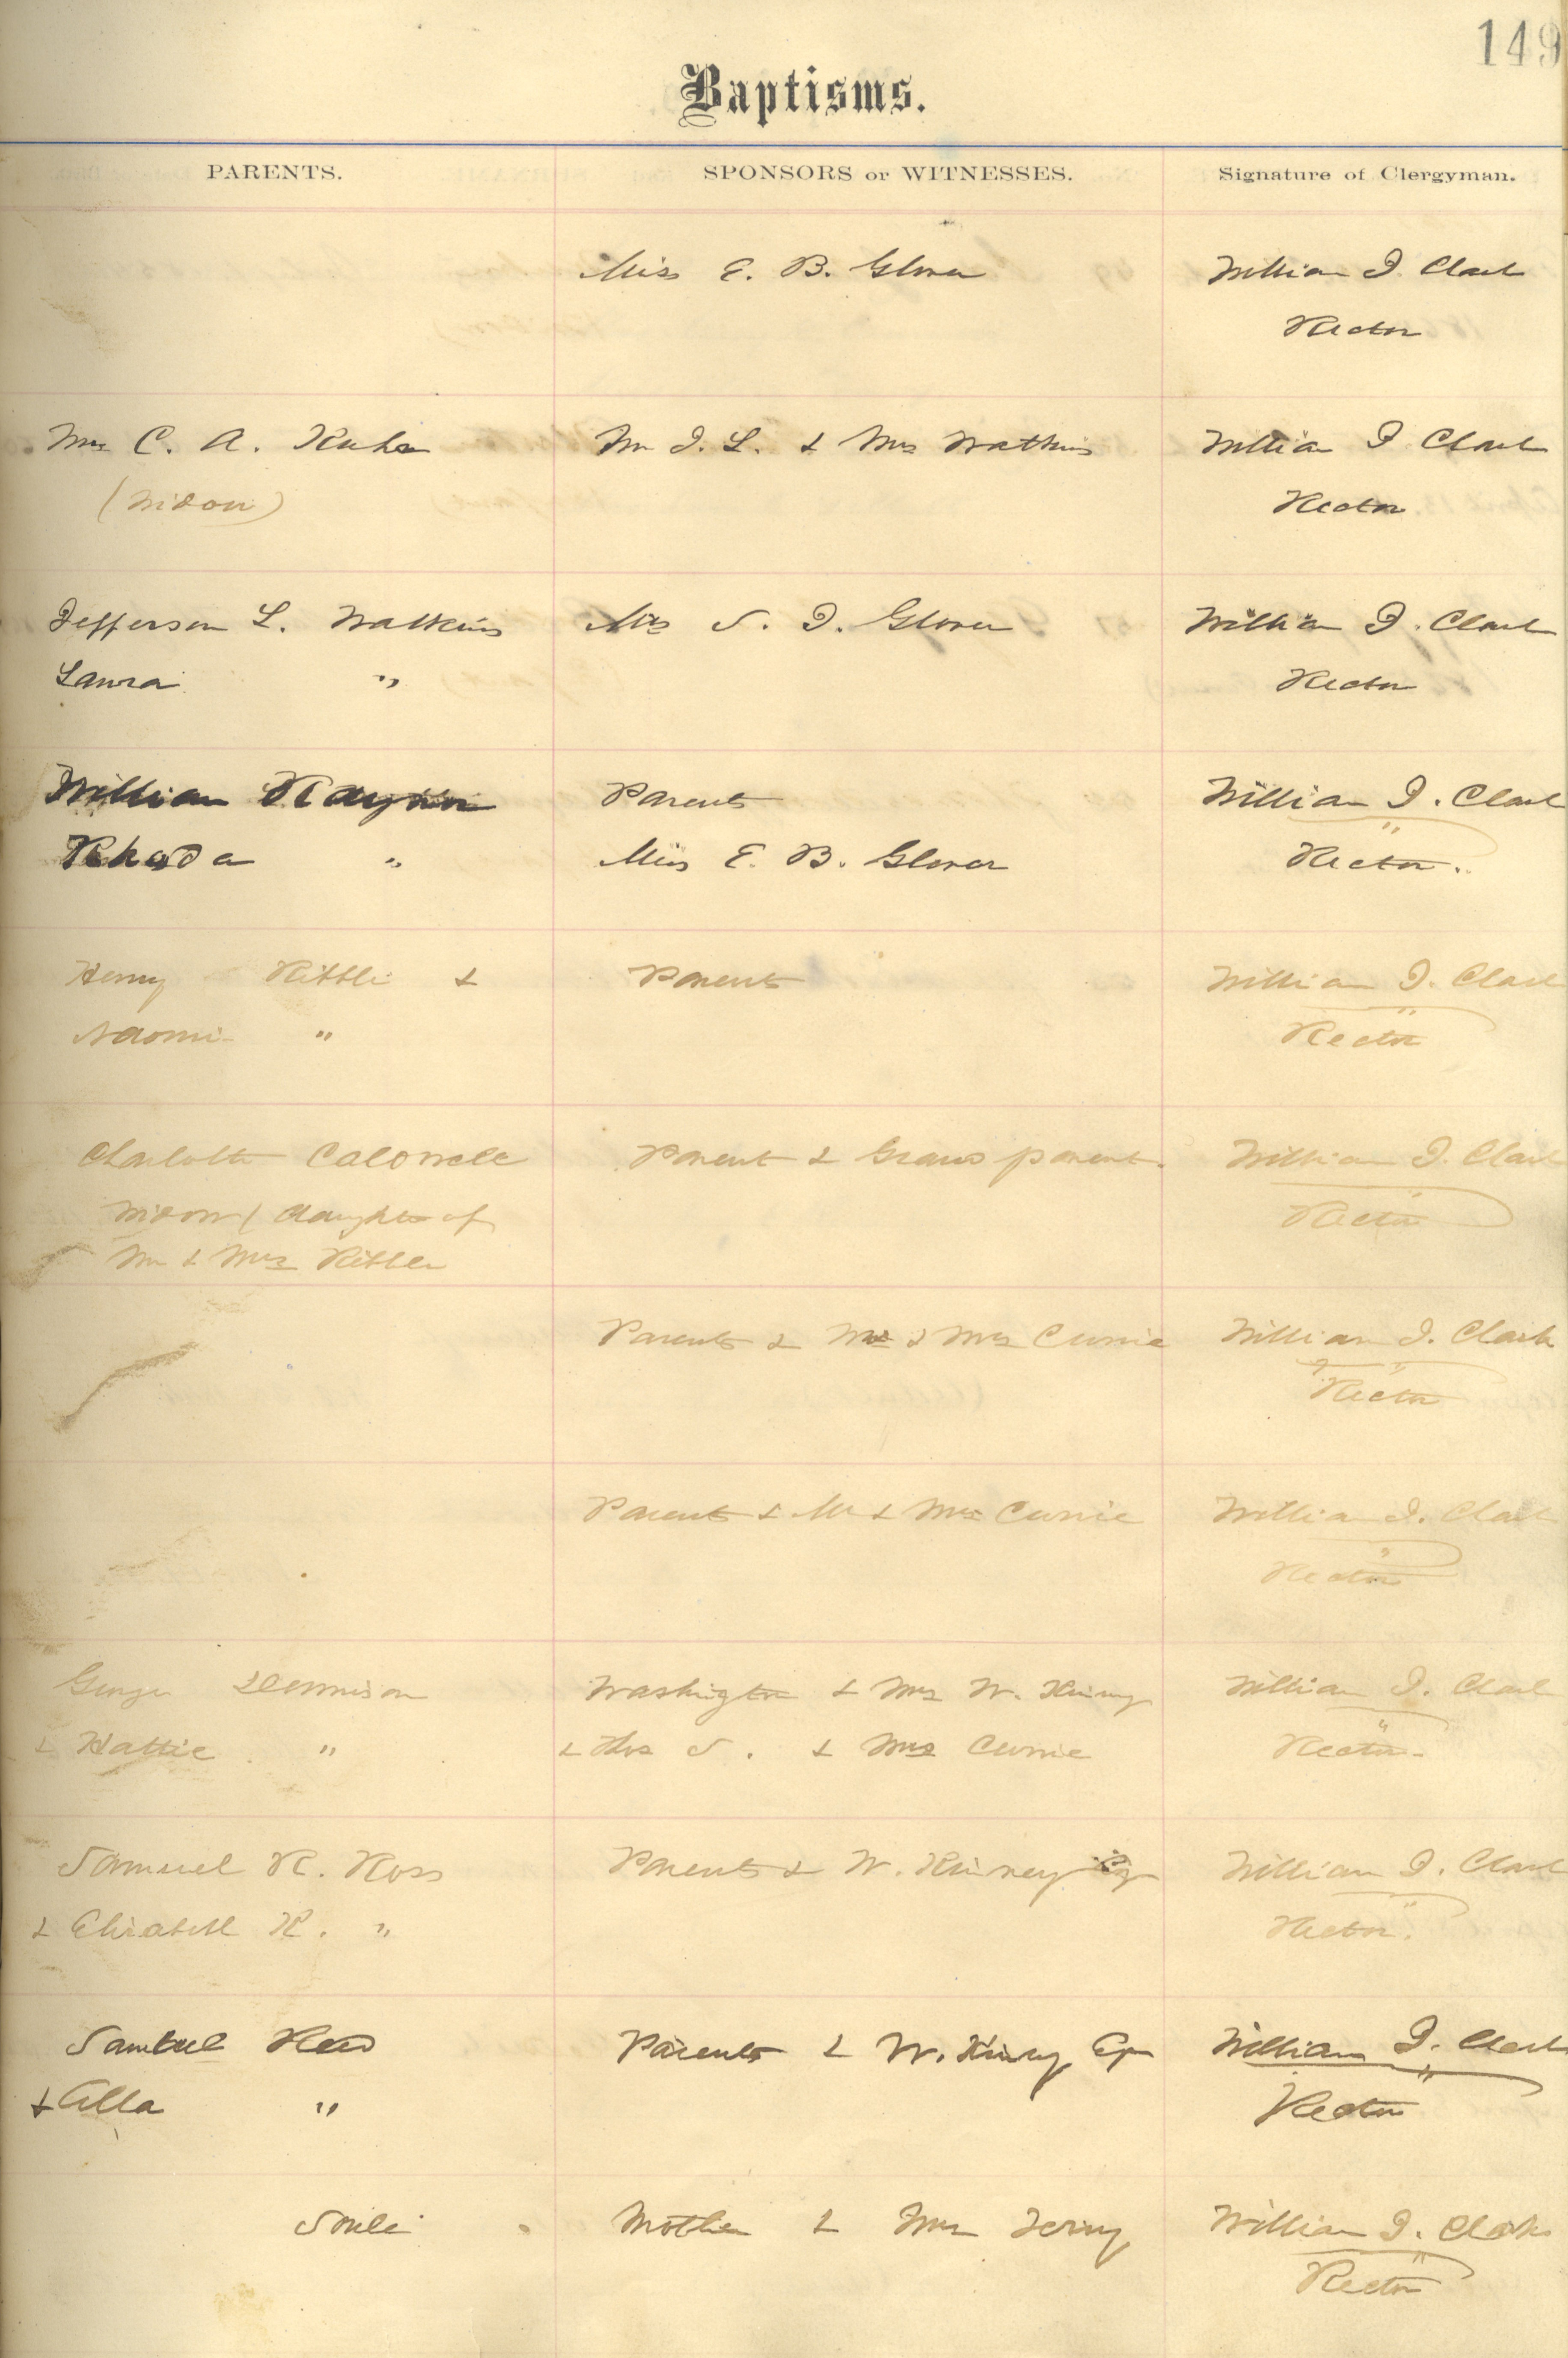 149
Baptisms.
PARENTS. SPONSORS or WITNESSES. Signature of Clergyman.
Miss E. B. Glover William J. Clark
Rector
Mrs C. A. Mr J. L. & Mrs Watkins William J Clark
(Widow) Rector
Jefferson L. Watkins Mrs S. J. Glover William J. Clark
Laura " Rector
William Parents William J. Clark
Rhoda " Miss E. B. Glover Rector.
Henry & Parents William J. Clark
Naomi " Rector
Charlotte Caldwell Parent & Grand parent. William J. Clark
Widow / daughter of Rector
Mr & Mrs
Parents & Mr & Mrs Currie William J. Clark
Rector
Parents & Mr & Mrs Currie William J. Clark
Rector
George Dennison Washington & Mrs W. Kinney William J. Clark
& Hattie " & Thos S. & Mrs Currie Rector.
Samuel R. Ross Parents & W. Kinney Esq William J. Clark
& Elizabeth R. " Rector.
Samuel Parents & W. Kinney Esq William J. Clark
& " Rector
Mother & Mrs William J. Clark
Rector